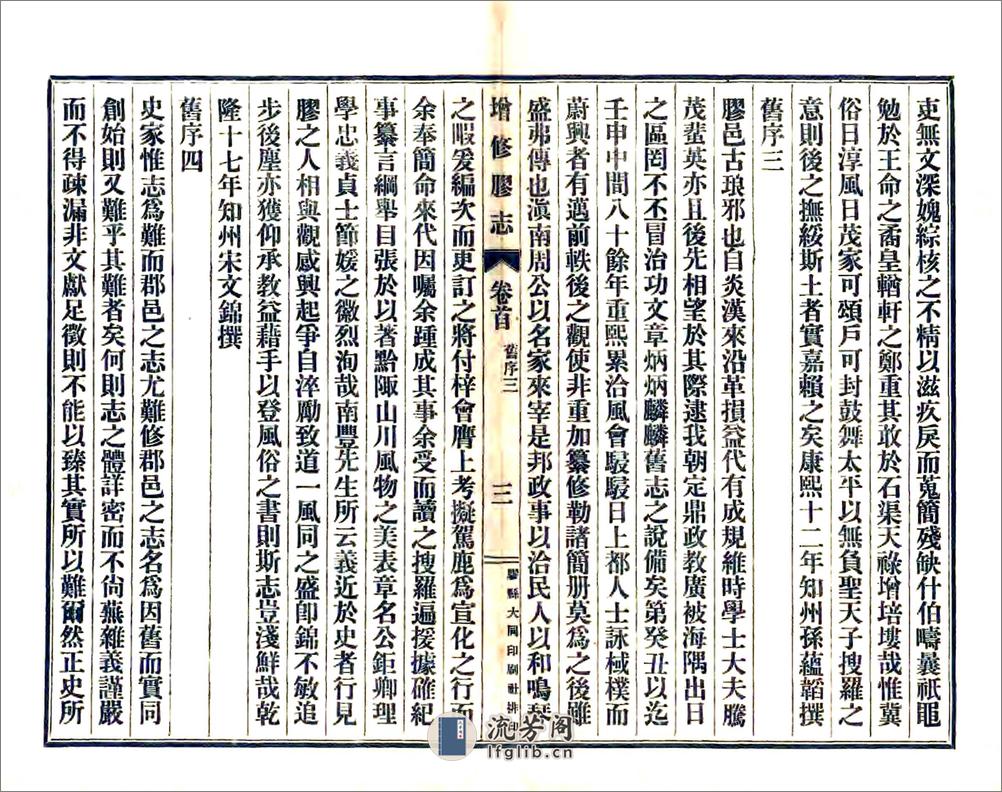 吏無文深媿綜核之不精以滋疚戾而蒐簡殘缺什伯疇曩祇黽
勉於王命之矞皇輶軒之鄭重其敢於石渠天祿增培塿哉惟冀
俗日淳風日茂家可頌戶可封鼓舞太平以無負聖天子搜羅之
意則後之撫綏斯土者實嘉賴之矣康熙十二年知州孫蘊韜撰
舊序三
膠邑古琅邪也自炎漢來沿革損益代有成規維時學士大夫騰
茂蜚英亦且後先相望於其際逮我朝定鼎政教廣被海隅出日
之區罔不丕冒治功文章炳炳麟麟舊志之說備矣第癸丑以迄
壬申中間八十餘年重熙累洽風會駸駸日上都人士詠棫樸而
蔚興者有邁前軼後之觀使非重加纂修勒諸簡册莫爲之後雖
盛弗傳也滇南周公以名家來宰是邦政事以洽民人以和鳴琴
增修膠志
卷首
舊序三
三
膠縣大同印刷社排印
之暇爰編次而更訂之將付梓會膺上考擬駕鹿爲宣化之行而
余奉簡命來代因囑余踵成其事余受而讀之搜羅遍援據確紀
事纂言綱舉目張於以著黔陬山川風物之美表章名公鉅卿理
學忠義貞士節媛之徽烈洵哉南豐先生所云義近於史者行見
膠之人相與觀感興起爭自淬勵致道一風同之盛卽錦不敏追
步後塵亦獲仰承教益藉手以登風俗之書則斯志豈淺鮮哉乾
隆十七年知州宋文錦撰
舊序四
史家惟志爲難而郡邑之志尤難修郡邑之志名爲因舊而實同
創始則又難乎其難者矣何則志之體詳密而不尙蕪雜義謹嚴
而不得疎漏非文獻足徵則不能以臻其實所以難爾然正史所
流芳阁
lfglib.cn